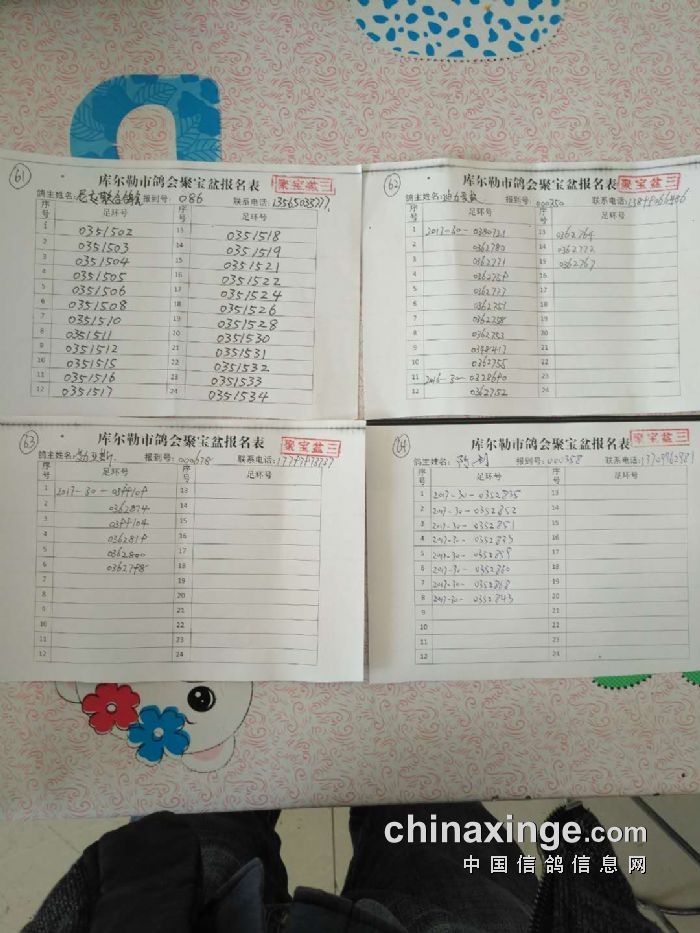 61
库尔勒市鸽会聚宝盆报名表
聚宝盆三
鸽主姓名: 联合鸽舍 报到号: 086 联系电话:
序号 足环号 序号 足环号
1 0351502 13 0351518
2 0351503 14 0351519
3 0351504 15 0351521
4 0351505 16 0351522
5 0351506 17 0351524
6 0351508 18 0351526
7 0351510 19 0351528
8 0351511 20 0351530
9 0351512 21 0351531
10 0351515 22 0351532
11 0351516 23 0351533
12 0351517 24 0351534
62
库尔勒市鸽会聚宝盆报名表
聚宝盆三
鸽主姓名: 报到号: 000350 联系电话:
序号 足环号 序号 足环号
1 2017-30- 13 0362764
2 0362780 14 0362772
3 0362771 15 0362767
4 16
5 0362777 17
6 0362751 18
7 0362758 19
8 0362753 20
9 21
10 0362755 22
11 2016-30- 23
12 0362752 24
63
库尔勒市鸽会聚宝盆报名表
聚宝盆三
鸽主姓名: 报到号: 联系电话:
序号 足环号 序号 足环号
1 2017-30- 13
2 0362874 14
3 15
4 16
5 0362800 17
6 18
7 19
8 20
9 21
10 22
11 23
12 24
64
库尔勒市鸽会聚宝盆报名表
聚宝盆三
鸽主姓名: 报到号: 000358 联系电话:
序号 足环号 序号 足环号
1 2017-30- 0352835 13
2 2017-30- 0352852 14
3 2017-30- 0352851 15
4 2017-30- 0352833 16
5 2017-30- 0352859 17
6 2017-30- 0352850 18
7 2017-30- 0352868 19
8 2017-30- 0352843 20
9 21
10 22
11 23
12 24
chinaxinge.com
中国信鸽信息网